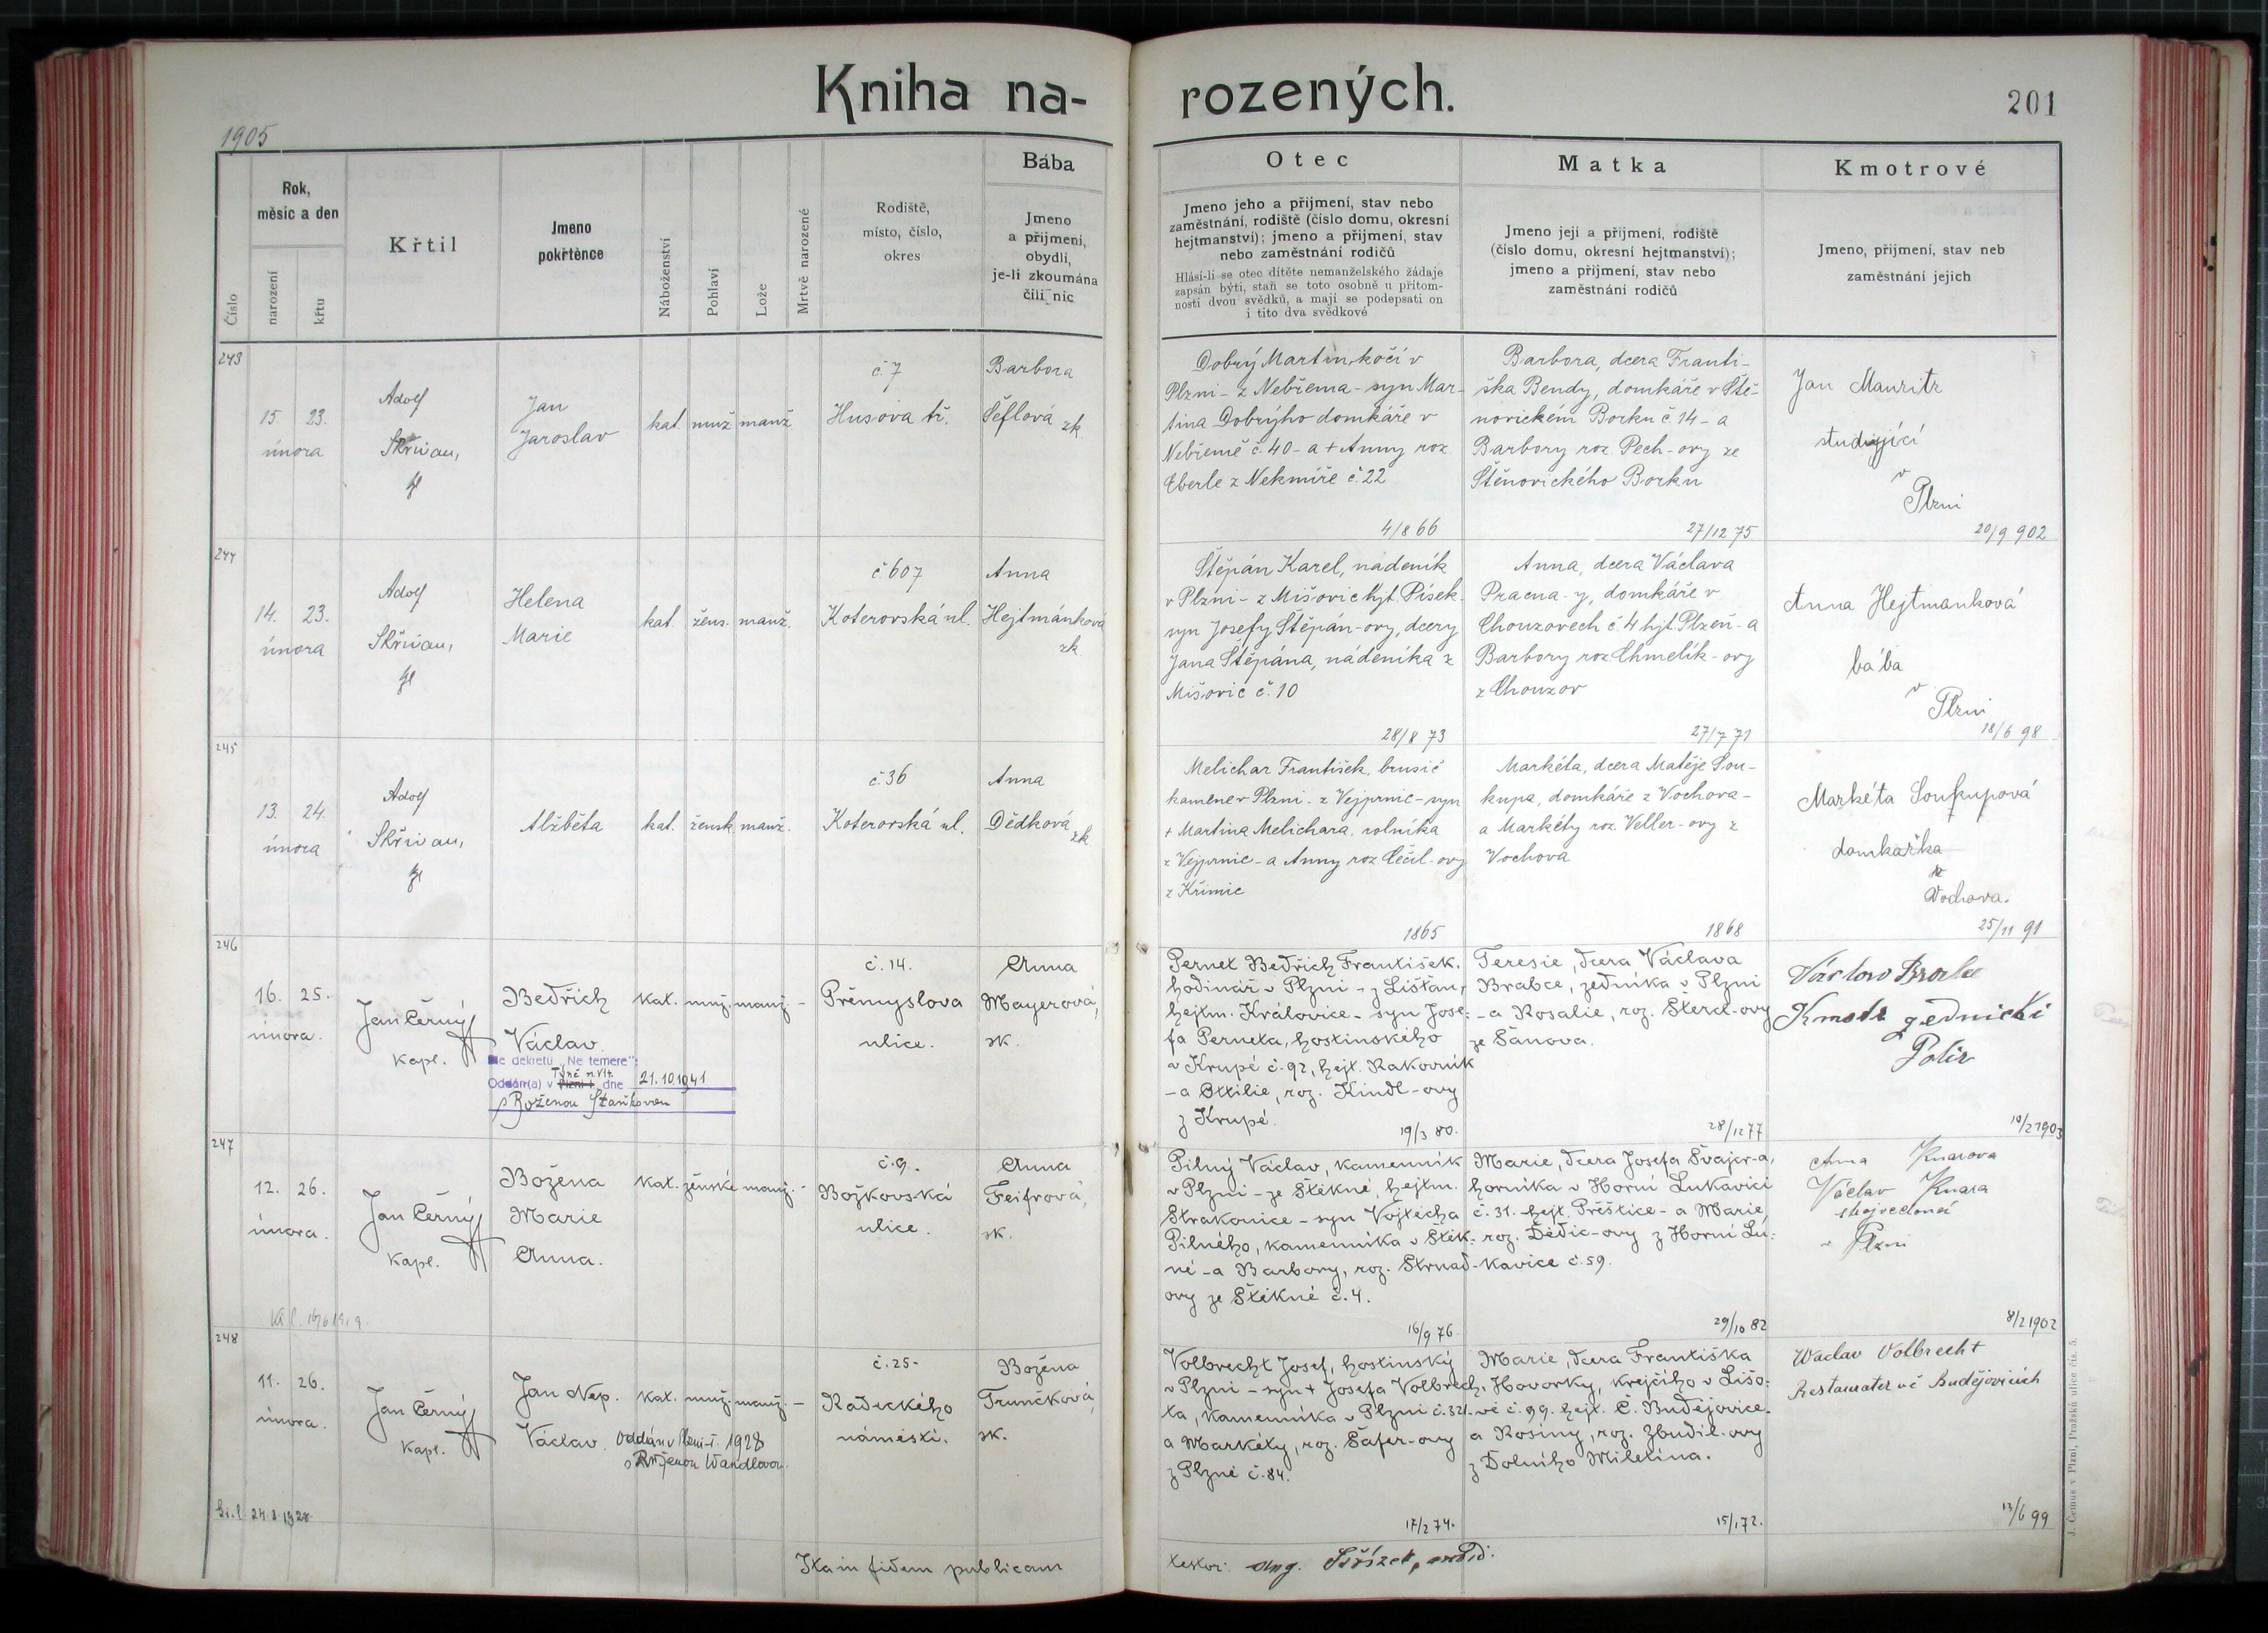 Kniha na-rozených.
201
1905
Číslo
Rok,
měsíc a den
narození
křtu
Křtil
Jmeno
pokřtěnce
Náboženství
Pohlaví
Lože
Mrtvě narozené
Rodiště,
místo, číslo,
okres
Bába
Jmeno
a přijmení,
obydlí,
je-li zkoumána
čili nic
Otec
Jmeno jeho a přijmení, stav nebo
zaměstnání, rodiště (číslo domu, okresní
hejtmanství); jmeno a přijmení, stav
nebo zaměstnání rodičů
Hlásí-li se otec dítěte nemanželského žádaje
zapsán býti, staň se toto osobně u přítom-
nosti dvou svědků, a mají se podepsati on
i tito dva svědkové
Matka
Jmeno její a přijmení, rodiště
(číslo domu, okresní hejtmanství);
jmeno a přijmení, stav nebo
zaměstnání rodičů
Kmotrové
Jmeno, přijmení, stav neb
zaměstnání jejich
243
15. 23.
února
Adolf
Skřivan,
Jan
Jaroslav
kat. muž. manž.
č. 7
Husova tř.
Barbora
Šeflová zk.
Dobrý Martin, kočí v
Plzni - z Nebřema - syn Mar-
tina Dobrýho domkáře v
Nebřemě č. 40 - a + Anny roz.
Eberle z Nekmíře č. 22
4/8 66
Barbora, dcera Franti-
ška Bendy, domkáře v Ště-
novickém Borku č 14 - a
Barbory roz. Pech-ovy ze
Štěnovického Borku
27/12 75
Jan Mauritz
studující
v
Plzni
20/9 902
244
14. 23.
února
Adolf
Skřivan,
Helena
Marie
kat. žens. manž.
č. 607
Koterovská ul.
Anna
Hejtmánková
zk.
Štěpán Karel, nádeník
v Plzni - z Mišovic hjt. Písek.
syn Josefy Štěpán-ovy, dcery
Jana Štěpána, nádeníka z
Mišovic č. 10
28/8 73
Anna, dcera Václava
Pracna-y, domkáře v
Chouzovech č 4 hjt. Plzeň - a
Barbory roz Chmelík-ovy
z Chouzov
27/7 71
Anna Hejtmanková
bába
v
Plzni
18/6 98
245
13. 24.
února
Adolf
Skřivan,
Alžběta
kat. žensk. manž.
č. 36
Koterovská ul.
Anna
Dědková
zk.
Melichar František, brusič
kamene v Plzni - z Vejprnic - syn
+ Martina Melichara, rolníka
z Vejprnic - a Anny roz.
z Křimic
1865
Markéta, dcera Matěje Sou-
kupa, domkáře z Vochova -
a Markéty roz. Veller-ovy z
Vochova
1868
Markéta Soukupová
domkařka
z
Vochova.
25/11 91
246
16. 25.
února.
Jan Černý
kapl.
Bedřich
Václav.
Dle dekretu "Ne temere":
Týně n. Vlt.
Oddán(a) v Plzni I. dne 21.10.1941
s Boženou Staňkovou
kat. muž. manž. -
č. 14.
Přemyslova
ulice.
Anna
Mayerová,
zk.
Pernet Bedřich František,
hodinář v Plzni - z Lišťan,
hejtm. Královice - syn Jose:
fa Perneta, hostinského
v Krupé č. 92, hejt. Rakovník
- a Ottilie, roz. Kindl-ovy
z Krupé.
19/3 80.
Teresie, dcera Václava
Brabce, zedníka v Plzni
- a Rosalie, roz. Štercl-ovy
ze Šanova.
28/12 77
Václav
Kmotr
Polír
10/2 1903
247
12. 26.
února.
Jan Černý
kapl.
Božena
Marie
Anna.
kat. ženské manž. -
č. 9.
Božkovská
ulice.
Anna
Feifrová,
zk.
Pilný Václav, kamenník
v Plzni - ze Štěkné, hejtm.
Strakonice - syn Vojtěcha
Pilného, kamenníka v Štěk:
né - a Barbory, roz. Strnad-
ovy ze Štěkné č. 4.
16/9 76.
Marie, dcera Josefa Švajcr-a,
horníka v Horní Lukavici
č. 31. hejt. Přeštice - a Marie,
roz. Dědic-ovy z Horní Lu:
kavice č. 59.
29/10 82
Anna Knarova
Václav Knara
v Plzni
8/2 1902
248
11. 26.
února.
Jan Černý
kapl.
Jan Nep.
Václav.
Oddán v Plzni-I. 1928
s Růženou Wandlovou.
kat. muž. manž. -
č. 25.
Radeckého
náměstí.
Božena
Trunčková,
zk.
Volbrecht Josef, hostinský
v Plzni - syn + Josefa Volbrech:
ta, kamenníka v Plzni č. 321.
a Markéty, roz. Šafer-ovy
z Plzně č. 84.
17/2 74.
Marie, dcera Františka
Hovorky, krejčího v Lišo:
vě č. 99. hejt. Č. Budějovice.
a Rosiny, roz. Zbudil-ovy
z Dolního Miletína.
15/1 72.
Waclav Volbrecht
Restaurater vč Budějovicích
13/6 99
24.2.1928
Ita in fidem publicam
testor:
J. Čemus v Plzni, Pražská ulice čís. 5.